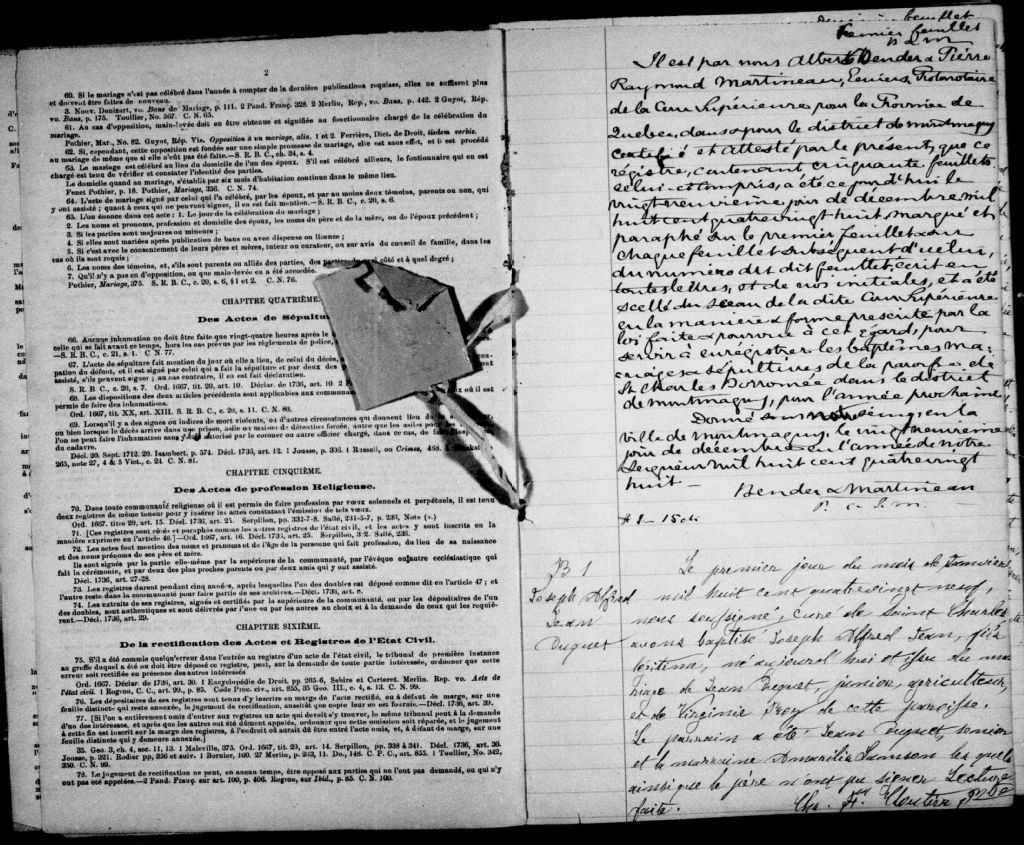 2
60. Si le mariage n'est pas célébré dans l'année à compter de la dernière publications requises, elles ne suffisent plus
et doivent être faites de nouveau.
3. Nouv. Denizart, vo. Bans de Mariage, p. 111. 2 Pand. Franç. 328. 2 Merlin, Rép., vo. Bans, p. 442. 2 Guyot, Rép.
vo. Bans, p. 175. Toullier, No. 567. C. N. 65.
61. Au cas d'opposition, main-levée doit en être obtenue et signifiée au fonctionnaire chargé de la célébration du
mariage.
Pothier, Mar., No. 82. Guyot, Rép. Vis. Opposition à un mariage, alin. 1 et 2. Ferrière, Dict. de Droit, iisdem verbis.
62. Si, cependant, cette opposition est fondée sur une simple promesse de mariage, elle est sans effet, et il est procédé
au mariage de même que si elle n'eût pas été faite.—S. R. B. C., ch. 34, s. 4.
63. Le mariage est célébré au lieu du domicile de l'un des époux. S'il est célébré ailleurs, le fontionnaire qui en est
chargé est tenu de vérifier et constater l'identité des parties.
Le domicile quand au mariage, s'établit par six mois d'habitation continue dans le même lieu.
Fenet Pothier, p. 18. Pothier, Mariage, 356. C. N. 74.
64. L'acte de mariage signé par celui qui l'a célébré, par les époux, et par au moins deux témoins, parents ou non, qui
y ont assisté; quant à ceux qui ne peuvent signer, il en est fait mention.—S. R. B. C., c. 20, s. 6.
65. L'on énonce dans cet acte: 1. Le jour de la célébration du mariage;
2. Les noms et pronoms, profession et domicile des époux, les noms du père et de la mère, ou de l'époux précédent;
3. Si les parties sont majeures ou mineures;
4. Si elles sont mariées après publication de bans ou avec dispense ou licence;
5. Si c'est avec le consentement de leurs pères et mères, tuteur ou curateur, ou sur avis du conseil de famille, dans les
cas où ils sont requis;
6. Les noms des témoins, et, s'ils sont parents ou alliés des parties, des quel côté et à quel degré;
7. Qu'il n'y a pas eu d'opposition, ou que main-levée en a été accordée.
Pothier, Mariage, 375. S. R. B. C., c. 20, s. 6, § 1 et 2. C. N. 76.
CHAPITRE QUATRIÈME
Des Actes de Sépultu
66. Aucune inhumation ne doit être faite que vingt-quatre heures après le
celui qui se fait avant ce temps, hors les cas prévus par les règlements de police,
—S. R. B. C., c. 21, s. 1. C N. 77.
67. L'acte de sépulture fait mention du jour où elle a lieu, de celui du décès,
pation du défunt, et il est signé par celui qui a fait la sépulture et par deux des
assisté, s'ils peuvent signer; au cas contraire, il en est fait déclaration.
S. R. B. C., c. 20, s. 7. Ord. 1667, tit. 20, art. 10. Déclar. de 1736, art. 10.
68. Les dispositions des deux articles précédents sont applicables aux commun où il est
permis de faire des inhumations.
Ord. 1667, tit. XX, art. XIII. S. R. B. C., c. 20, s. 11. C. N. 80.
69. Lorsqu'il y a des signes ou indices de mort violente, ou d'autres circonstances qui donnent lieu
ou bien lorsque le décès arrive dans une prison, asile ou maison de détention forcée, autre que les asiles
l'on ne peut faire l'inhumation sans y être autorisé par le coroner ou autre officier chargé, dans ce cas, de fai
du cadavre.
Décl. 20. Sept. 1712. 20. Isambert, p. 574. Décl. 1736, art. 12. 1 Jousse, p. 336. 1 Russell, ou Crimes, 468.
265, note 27, 4 & 5 Vict., c. 24. C. N. 81.
CHAPITRE CINQUIÈME.
Des Actes de profession Religieuse.
70. Dans toute communauté religieuse où il est permis de faire profession par vœux solennels et perpétuels, il est tenu
deux registres de même teneur pour y insérer les actes constatant l'émission de tels vœux.
Ord. 1667. titre 20, art. 15. Décl. 1736, art. 25. Serpillon, pp. 332-7-8. Sallé, 231-5-7, p. 236, Note (a.)
71. [Ces registres sont cotés et paraphés comme les autres registres de l'état civil, et les actes y sont inscrits en la
manière exprimée en l'article 46.]—Ord. 1667, art. 16. Décl. 1736, art. 25. Serpillon, 332. Sallé, 236.
72. Les actes font mention des noms et prenoms et de l'âge de la personne qui fait profession, du lieu de sa naissance
et des noms prénoms de ses père et mère.
Ils sont signés par la partie elle-même par la supérieure de la communauté, par l'évêque ou autre ecclésiastique qui
fait la cérémonie, et par deux des plus proches parents ou par deux amis qui y ont assisté.
Décl. 1736, art. 27-28.
73. Les registres durent pendant cinq années, après lesquelles l'un des doubles est déposé comme dit en l'article 47; et
l'autre reste dans la communauté pour faire partie de ses archives.—Décl. 1736, art. 8.
74. Les extraits de ses registres, signés et certifiés par la supérieure de la communauté, ou par les dépositaires de l'un
des doubles, sont authentiques et sont délivrés par l'une ou par les autres au choix et à la demande de ceux qui les requiè-
rent.—Décl. 1736, art. 29.
CHAPITRE SIXIÈME.
De la rectification des Actes et Registres de l'Etat Civil.
75. S'il a été commis quelqu'erreur dans l'entrée au registre d'un acte de l'état civil, le tribunal de première instance
au greffe duquel a été ou doit être déposé ce registre, peut, sur la demande de toute partie intéressée, ordonner que cette
erreur soit rectifiée en présence des autres intéressés.
Ord. 1667. Déclar. de 1736, art. 30. 1 Encyclopédie de Droit. pp 205-6, Sebire et Carteret. Merlin. Rep. vo. Acte de
l'état civil. 1 Rogron, C. C., art. 99., p. 85. Code Proc. civ., art. 855, 35 Geo. III., c. 4, s. 13. C. N. 99.
76. Les dépositaires de ces registres sont tenus d'y inscrire en marge de l'acte rectifié, ou à défaut de marge, sur une
feuille distincte qui reste annexée, le jugement de rectification, aussitôt que copie leur en est fournie.—Décl. 1736, art. 39.
77. [Si l'on a entièrement omis d'entrer aux registres un acte qui devrait s'y trouver, le même tribunal peut à la demande
d'un des intéressés, et après que les autres ont été dûment appelés, ordonner que cette omission soit réparée, et le jugement
à cette fin est inscrit sur la marge des registres, à l'endroit où aurait dû être entré l'acte omis, et, à défaut de marge, sur une
feuille distincte qui y demeure annexée.]
35. Geo. 3, ch. 4, sec. 11, 13. 1 Maleville, 375. Ord. 1667, tit. 29, art. 14. Serpillon, pp. 338 à 341. Décl. 1736, art. 30.
Jousse, p. 321. Rodier pp, 356 et suiv. 1 Bornier, 160. 27 Merlin, p. 283, 11. Do., 148. C. P. C., art. 855. 1 Toullier, No. 342,
350. C. N. 99.
78. Le jugement de rectification ne peut, en aucun temps, être opposé aux parties qui ne l'ont pas demandé, ou qui n'y
ont pas été appelées.—2 Pand. Franç. sur art. 100, p. 406. Rogron, sur Ibid., p. 85. C. N. 100.
feuillet
Premier feuillet
B & M
Il est par nous Albert Bender & Pierre
Raymond Martineau, Ecuiers, Protonotaire
de la Cour Supérieure pour la Province de
Quebec, dans & pour le district de Montmagny
certifié et attesté par le présent, que ce
régistre, contenant cinquante feuillets
celui-ci compris, a été ce jour d'hui le
vingt neuvième jour de décembre mil
huit cent quatre vingt huit, marqué et
paraphé sur le premier feuillet & sur
chaque feuillet subséquent d'icelui,
du numéro du dit feuillet, écrit en
toutes lettres, et de nos initiales, et a été
scellé du sceau de la dite Cour Supérieure
en la manière & forme prescrite par la
loi faite & pourvue à cet égard, pour
servir à enregistrer les baptêmes ma-
riages & sépultures de la paroisse de
St Charles Borromée dans le district
de Montmagny, pour l'année prochaine
Donné sous notre seing, en la
ville de Montmagny, le vingt neuvième
jour de décembre en l'année de notre
Seigneur mil huit cent quatre vingt
huit —
Bender & Martineau
P. C. S. M.
B 1
Joseph Alfred
Jean
Duquet
Le premier jour du mois de Janvier
mil huit cent quatre vingt neuf,
nous soussigné, curé de Saint Charles
avons baptisé Joseph Alfred Jean, fils
légitime, né aujourd'hui et issu du ma
riage de Jean Duquet junior, agriculteur,
et de Virginie Proy de cette paroisse.
Le parrain a été Jean Duquet senior
et la marraine Amarilia Samson les quels
ainsi que le père n'ont pu signer Lecture
faite.
Chs. F. Cloutier Ptre